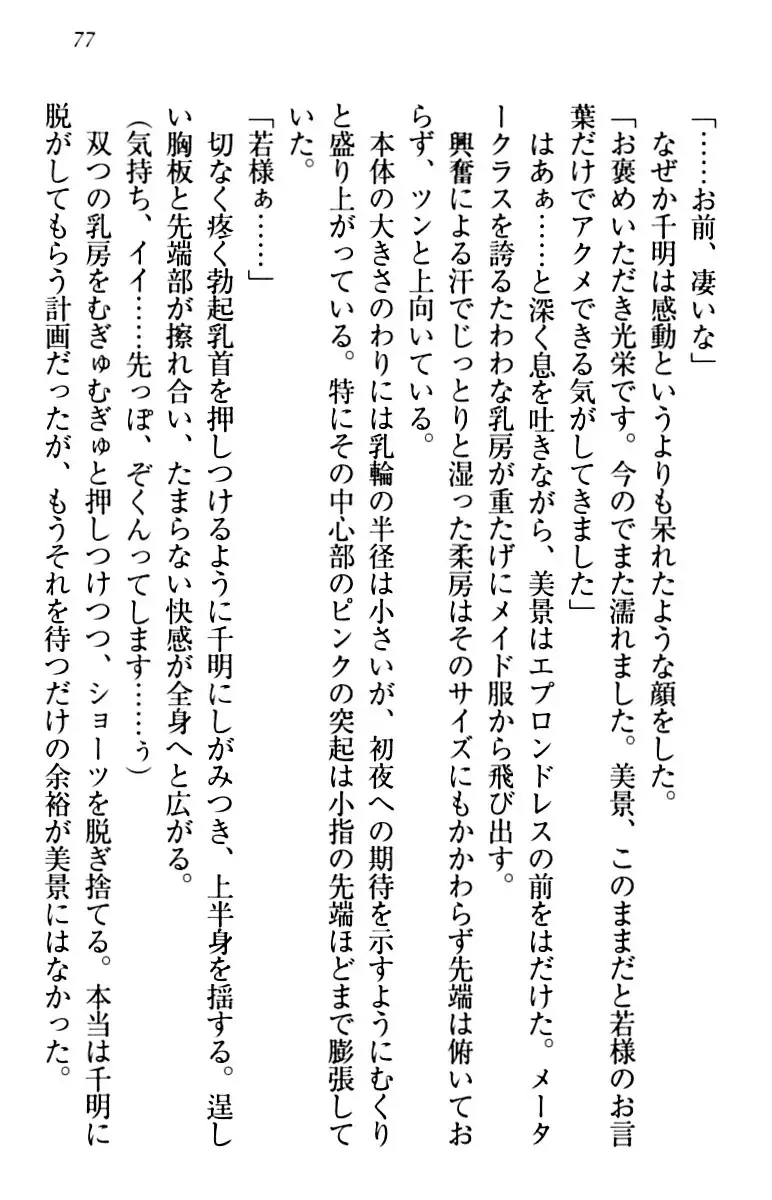 77
「……お前、凄いな」
なぜか千明は感動というよりも呆れたような顔をした。
「お褒めいただき光栄です。今のでまた濡れました。美景、このままだと若様のお言
葉だけでアクメできる気がしてきました」
はあぁ……と深く息を吐きながら、美景はエプロンドレスの前をはだけた。メータ
ークラスを誇るたわわな乳房が重たげにメイド服から飛び出す。
興奮による汗でじっとりと湿った柔房はそのサイズにもかかわらず先端は俯いてお
らず、ツンと上向いている。
本体の大きさのわりには乳輪の半径は小さいが、初夜への期待を示すようにむくり
と盛り上がっている。特にその中心部のピンクの突起は小指の先端ほどまで膨張して
いた。
「若様ぁ……」
切なく疼く勃起乳首を押しつけるように千明にしがみつき、上半身を揺する。逞し
い胸板と先端部が擦れ合い、たまらない快感が全身へと広がる。
(気持ち、イイ……先っぽ、ぞくんってします……ぅ)
双つの乳房をむぎゅむぎゅと押しつけつつ、ショーツを脱ぎ捨てる。本当は千明に
脱がしてもらう計画だったが、もうそれを待つだけの余裕が美景にはなかった。